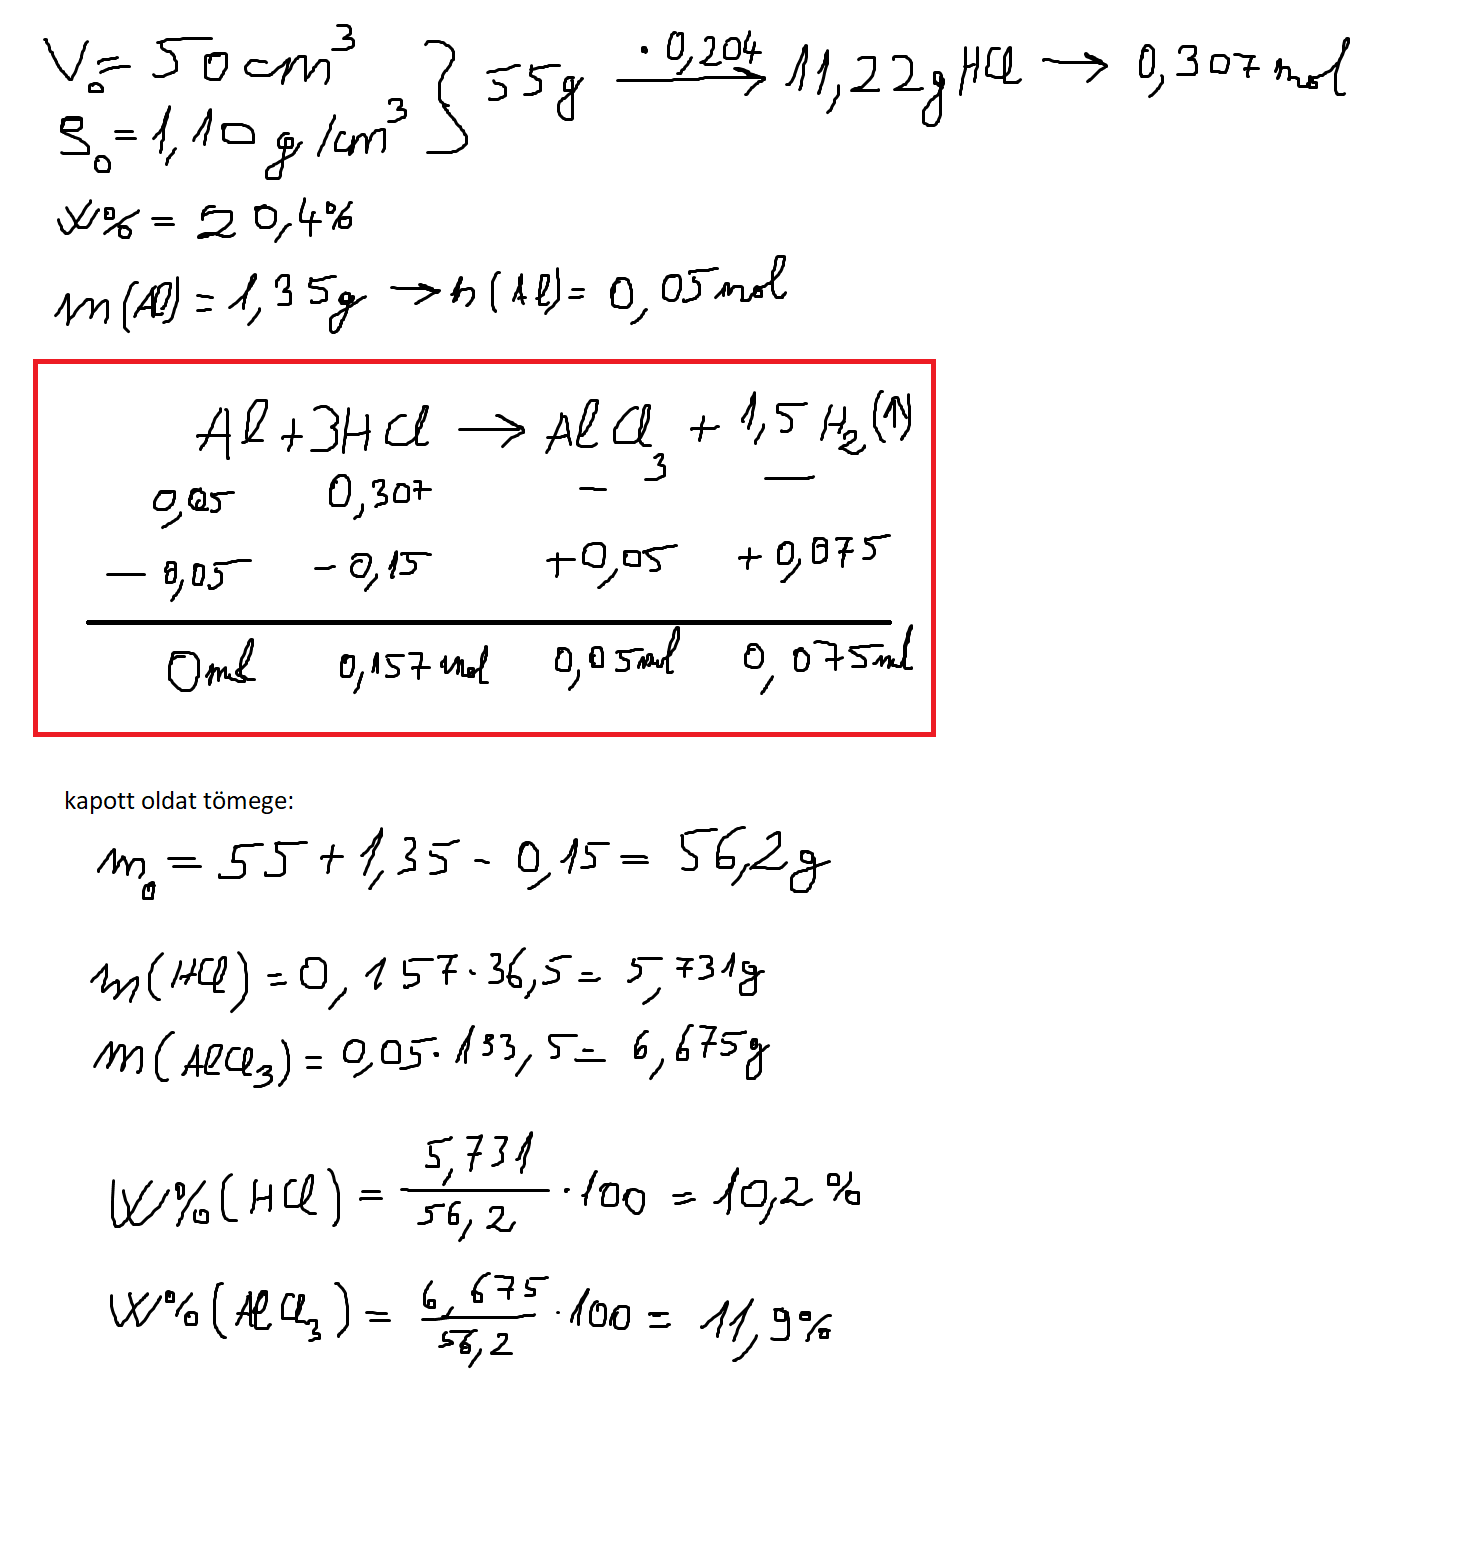 V₀ = 50 cm³ } 55g · 0,204 → 11,22g HCl → 0,307 mol
ϱ₀ = 1,10 g/cm³
W% = 20,4%
m(Al) = 1,35g → n(Al) = 0,05 mol
Al + 3HCl → AlCl₃ + 1,5 H₂(↑)
0,05 0,307 – —
– 0,05 – 0,15 + 0,05 + 0,075
0 mol 0,157 mol 0,05 mol 0,075 mol
kapott oldat tömege:
m₀ = 55 + 1,35 - 0,15 = 56,2g
m(HCl) = 0,157 · 36,5 = 5,731g
m(AlCl₃) = 0,05 · 133,5 = 6,675g
W%(HCl) = 5,731 / 56,2 · 100 = 10,2%
W%(AlCl₃) = 6,675 / 56,2 · 100 = 11,9%